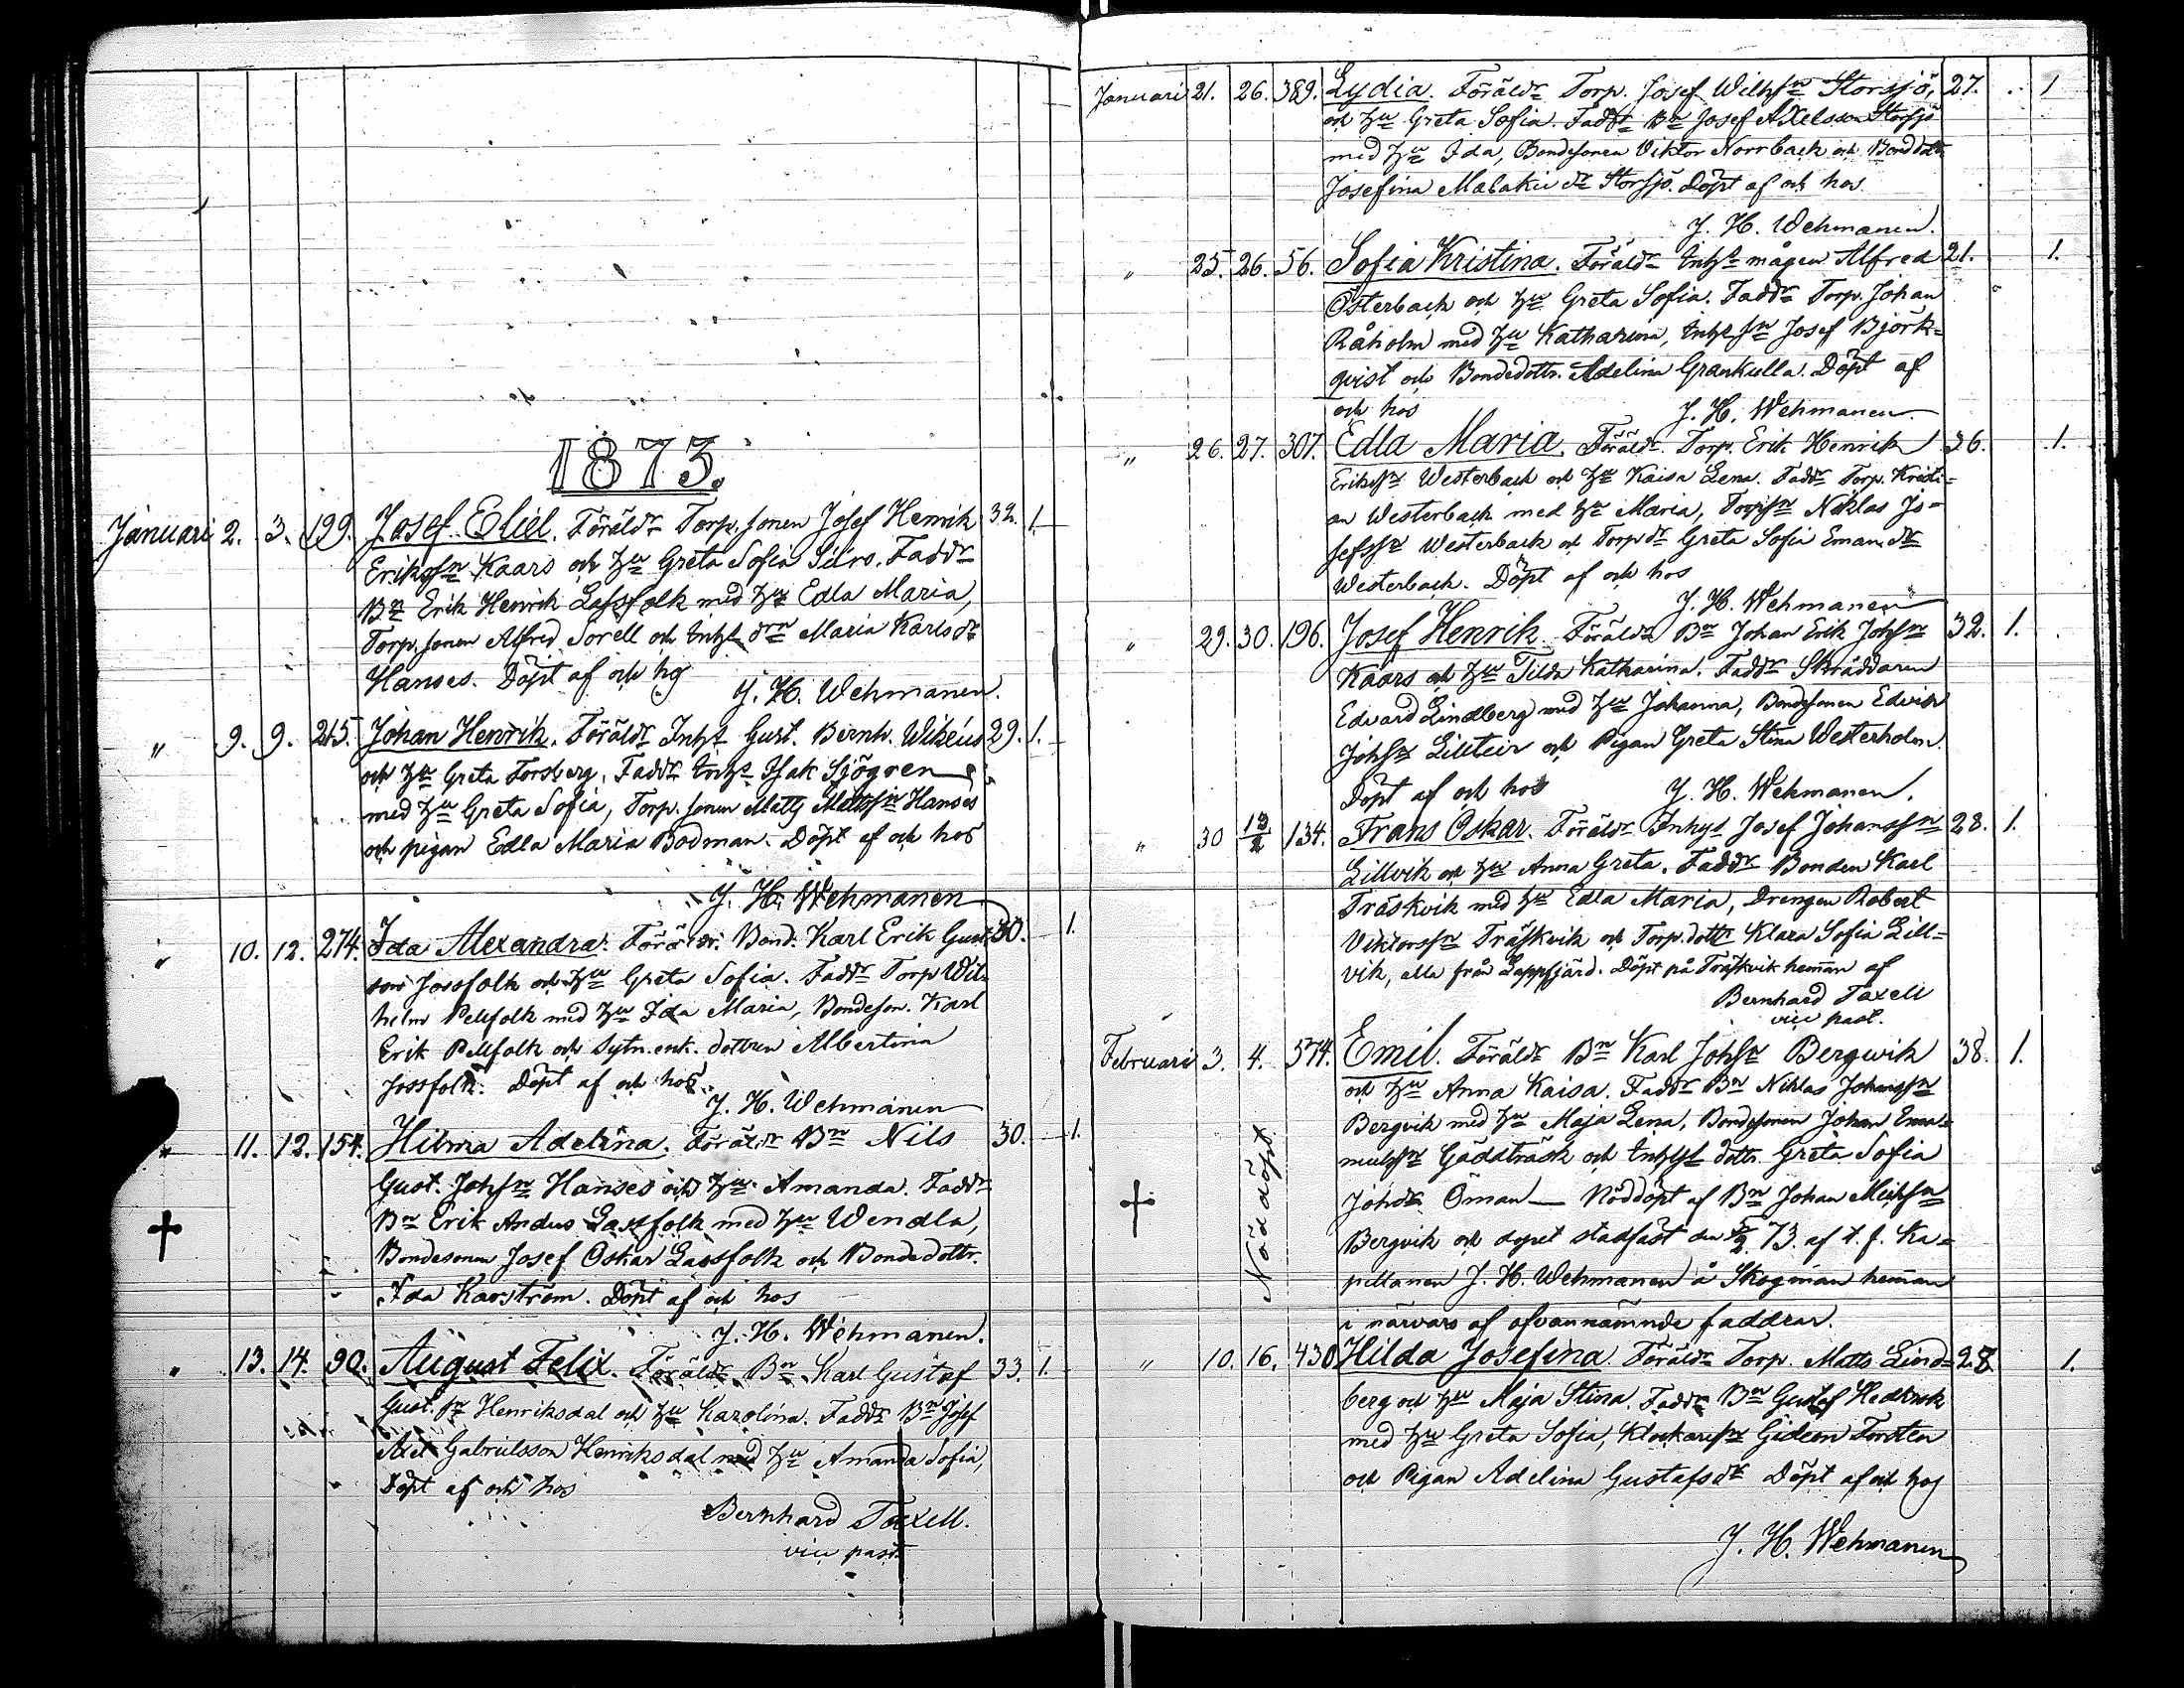 1873.
Januari 2. 3. 199. Josef Eliel. Föräldr Torp. sonen Josef Henrik 32. 1.
Eriksn Kaars och hu Greta Sofia Siirs. Faddr
Bn Erik Henrik Lassfolk med hu Edla Maria,
Torp. sonen Alfred Sorell och Inhys drn Maria Karlsdr
Hanses. Döpt af och hos
J. H. Wehmanen.
" 9. 9. 215. Johan Henrik. Föräldr Inhs Gust. Bernh. Wikéus 29. 1.
och hu Greta Forsberg. Faddr Inhs Isak Sjögren
med hu Greta Sofia, Torp. sonen Matts Mattssn Hanses
och pigan Edla Maria Bodman. Döpt af och hos
J. H. Wehmanen
" 10. 12. 274. Ida Alexandra. Föräldr. Bond. Karl Erik Gust. 30. 1.
son Jossfolk och hu Greta Sofia. Faddr Torp Wil-
helm Pellfolk med hu Ida Maria, Bondeson. Karl
Erik Pellfolk och Sytn. enk. dottren Albertina
Jossfolk. Döpt af och hos
J. H. Wehmanen
" 11. 12. 154. Hilma Adelina. Föräldr Bn Nils 30. 1.
Gust. Johsn Hanses och hu Amanda. Faddr
Bn Erik Anders Lassfolk med hu Wendla,
Bondesonen Josef Oskar Lassfolk och Bondedottr.
Ida Karström. Döpt af och hos
J. H. Wehmanen.
" 13. 14. 90. August Felix. Föräldr Bn Karl Gustaf 33. 1.
Gust. sn Henriksdal och hu Karolina. Faddr Bn Josef
Gabrielsson Henriksdal med hu Amanda Sofia,
Döpt af och hos
Bernhard Taxell.
vice past.
Januari 21. 26. 389. Lydia. Föräldr Torp. Josef Wilhsn Storsjö, 27. 1
och hu Greta Sofia. Faddr Bn Josef Axelsson Storsjö
med hu Ida, Bondesonen Viktor Norrback och Bonddottr
Josefina Malakiidr Storsjö. Döpt af och hos
J. H. Wehmanen.
" 25. 26. 56. Sofia Kristina. Föräldr Inhs mågen Alfred 21. 1.
Österback och hu Greta Sofia. Faddr Torp. Johan
Råholm med hu Katharina, Inhs sn Josef Björk-
qvist och Bondedottr. Adelina Grankulla. Döpt af
och hos J. H. Wehmanen
" 26. 27. 307. Edla Maria. Föräldr. Torp. Erik Henrik 36. 1.
Erikssn Westerback och hu Kaisa Lena. Faddr Torp. Kristi-
an Westerback med hu Maria, Torpsn Niklas Jo-
sefssn Westerback och Torpdr Greta Sofia Eman.dr
Westerback. Döpt af och hos
J. H. Wehmanen
" 29. 30. 196. Josef Henrik. Föräldr Bn Johan Erik Johsn 32. 1.
Kaars och hu Tilda Katharina. Faddr Skräddaren
Edvard Lindberg med hu Johanna, Bondesonen Edvin
Johsn Lillteir och Pigan Greta Stina Westerholm.
Döpt af och hos J. H. Wehmanen.
" 30 13/2 134. Frans Oskar. Föräldr Inhys Josef Johanssn 28. 1.
Lillvik och hu Anna Greta. Faddr Bonden Karl
Träskvik med hu Edla Maria, Drengen Robert
Viktorssn Träskvik och Torp. dottr Klara Sofia Lill-
vik, alla från Lappfjärd. Döpt på Träskvik hemman af
Bernhard Taxell
vice past.
Februari 3. 4. 574. Emil. Föräldr Bn Karl Johsn Bergvik 38. 1.
och hu Anna Kaisa. Faddr Bn Niklas Johanssn
Bergvik med hu Maja Lena, Bondesonen Johan Ema-
nuelssn Gäddträsk och Inhys dottr. Greta Sofia
Johdr Öman — Nöddöpt af Bn Johan Michsn
Bergvik och dopet stadfäst den 5/2 73. af t. f. Ka-
pellanen J. H. Wehmanen å Skogman hemman
i närvaro af ofvannämnde faddrar.
Nöddöpt.
" 10. 16. 430 Hilda Josefina. Föräldr Torp. Matts Lind- 28. 1.
berg och hu Maja Stina. Faddr Bn Gustaf Hedkrok
med hu Greta Sofia, Klockaresn Gideon Forstén
och Pigan Adelina Gustafsdr Döpt af och hos
J. H. Wehmanen